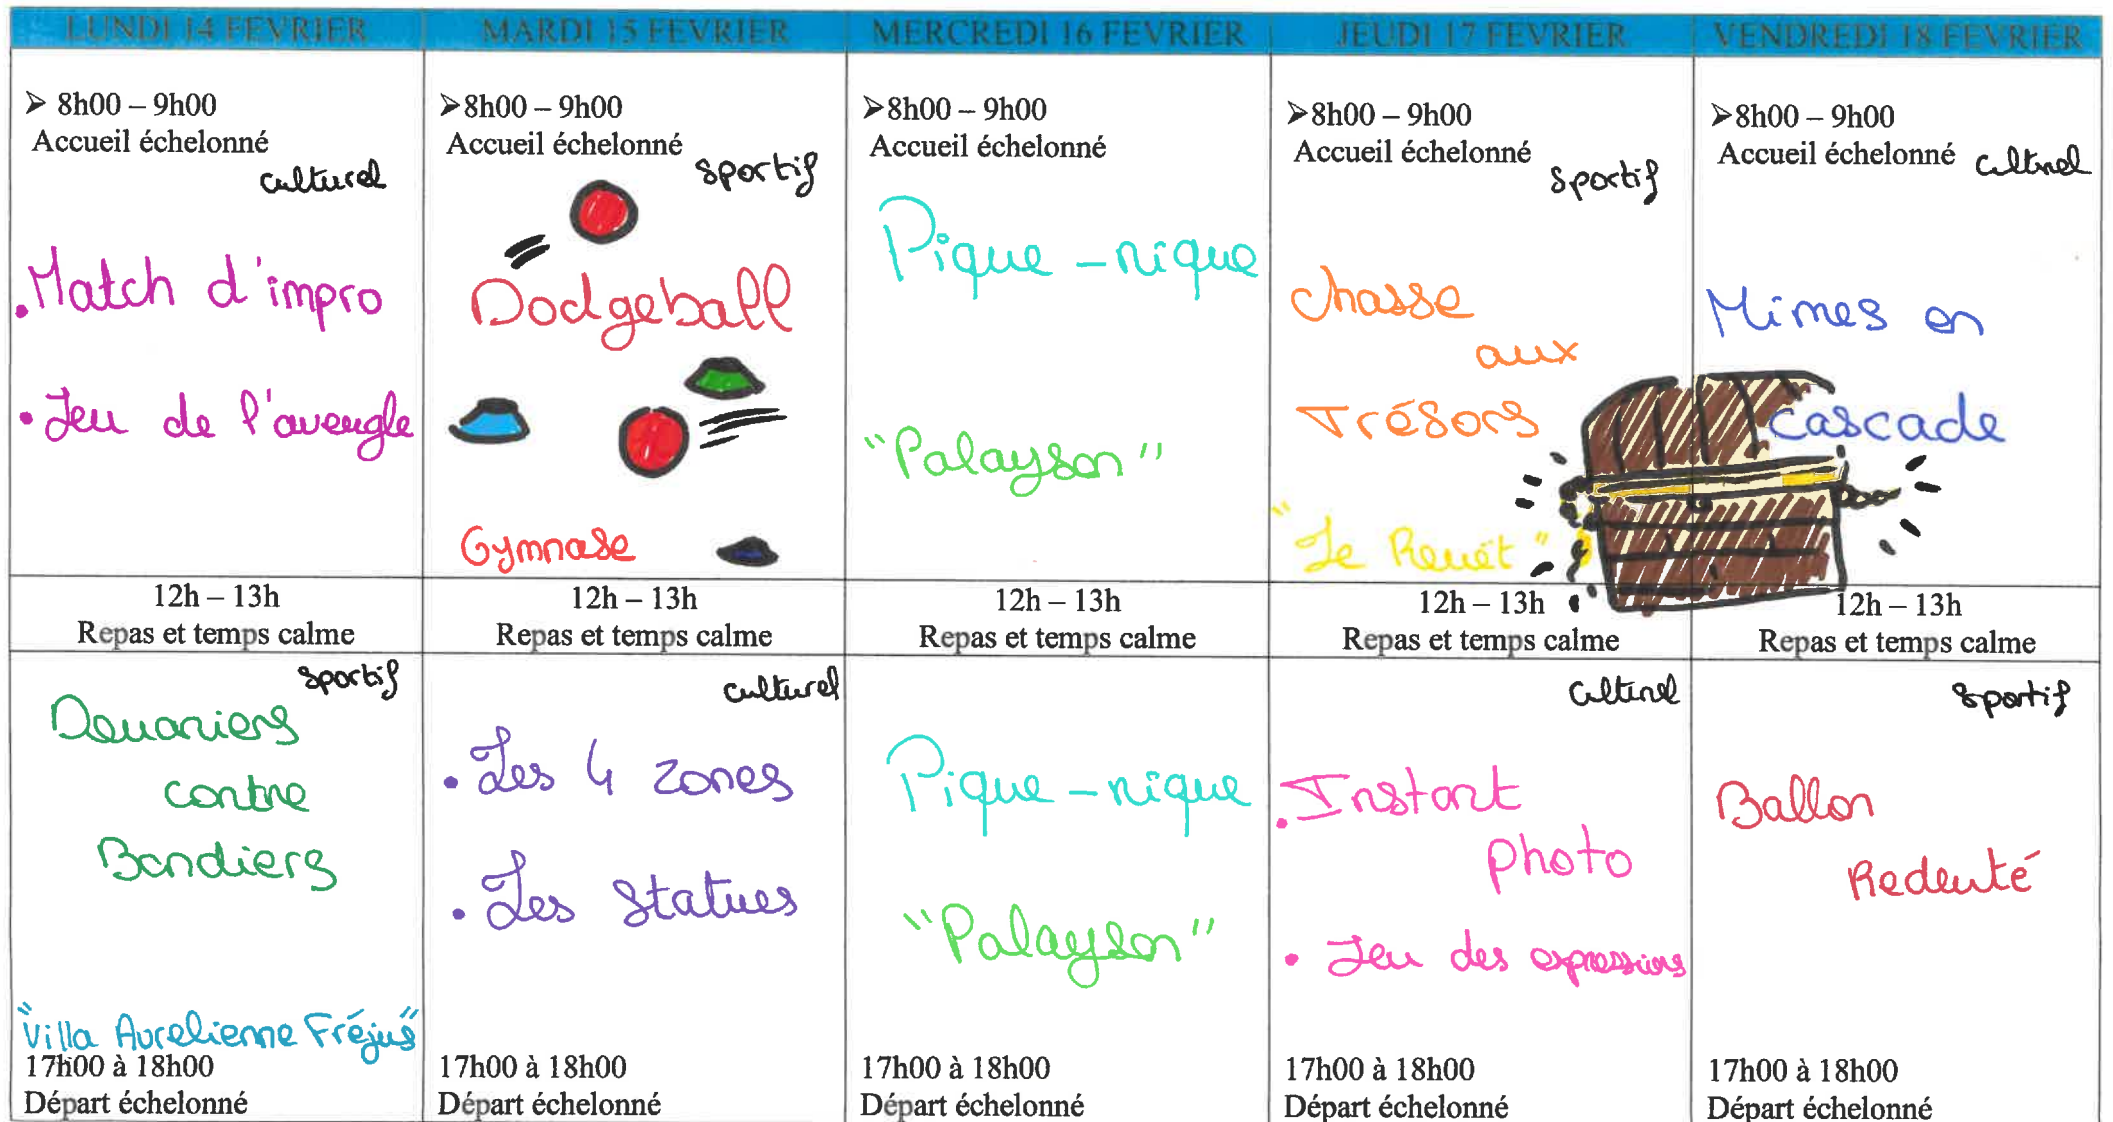 LUNDI 14 FEVRIER
MARDI 15 FEVRIER
MERCREDI 16 FEVRIER
JEUDI 17 FEVRIER
VENDREDI 18 FEVRIER
➢ 8h00 – 9h00
Accueil échelonné
culturel
.Match d'impro
• Jeu de l'aveugle
➢8h00 – 9h00
Accueil échelonné
sportif
Dodgeball
Gymnase
➢8h00 – 9h00
Accueil échelonné
Pique-nique
"Palayson"
➢8h00 – 9h00
Accueil échelonné
sportif
Chasse
aux
Trésors
"Le Revêt"
➢8h00 – 9h00
Accueil échelonné
culturel
Mimes en
cascade
12h – 13h
Repas et temps calme
12h – 13h
Repas et temps calme
12h – 13h
Repas et temps calme
12h – 13h
Repas et temps calme
12h – 13h
Repas et temps calme
sportif
Douaniers
contre
Bandiers
"Villa Aurelienne Fréjus"
17h00 à 18h00
Départ échelonné
culturel
• Les 4 zones
• Les statues
17h00 à 18h00
Départ échelonné
Pique-nique
"Palayson"
17h00 à 18h00
Départ échelonné
culturel
. Instant
photo
• Jeu des expressions
17h00 à 18h00
Départ échelonné
sportif
Ballon
Redeuté
17h00 à 18h00
Départ échelonné